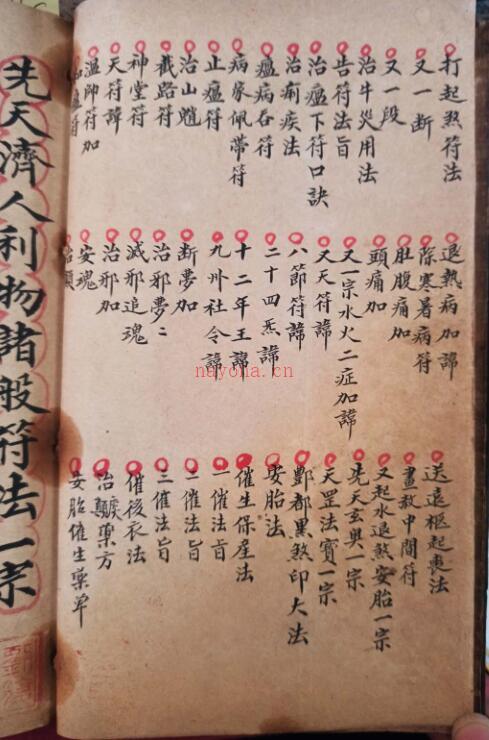 打起煞符法
又一断
又一段
治牛災用法
告符法旨
治瘟下符口訣
治痢疾法
瘟病吞符
病家佩帶符
止瘟符
治山魈
截路符
神堂符
天符諱
溫帥符加
退熱病加諱
除寒暑病符
肚腹痛加
頭痛加
又一宗水火二症加諱
又天符諱
八節符諱
二十四炁諱
十二年王諱
九州社令諱
断夢加
治邪夢二
滅邪追魂
治邪加
安魂
送退柩起喪法
畫敕中間符
又起水退煞安胎一宗
先天玄奧一宗
天罡法寶一宗
酆都黑煞印大法
安胎法
催生保産法
一催法旨
二催法旨
三催法旨
催後衣法
治藥方
安胎催生藥单
先天濟人利物諸般符法一宗
nayona.cn